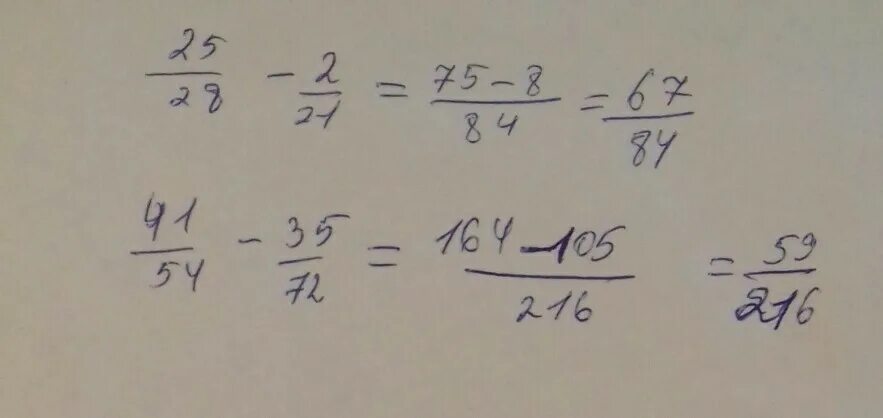 25/28 - 2/21 = 75-8/84 = 67/84
41/54 - 35/72 = 164-105/216 = 59/216